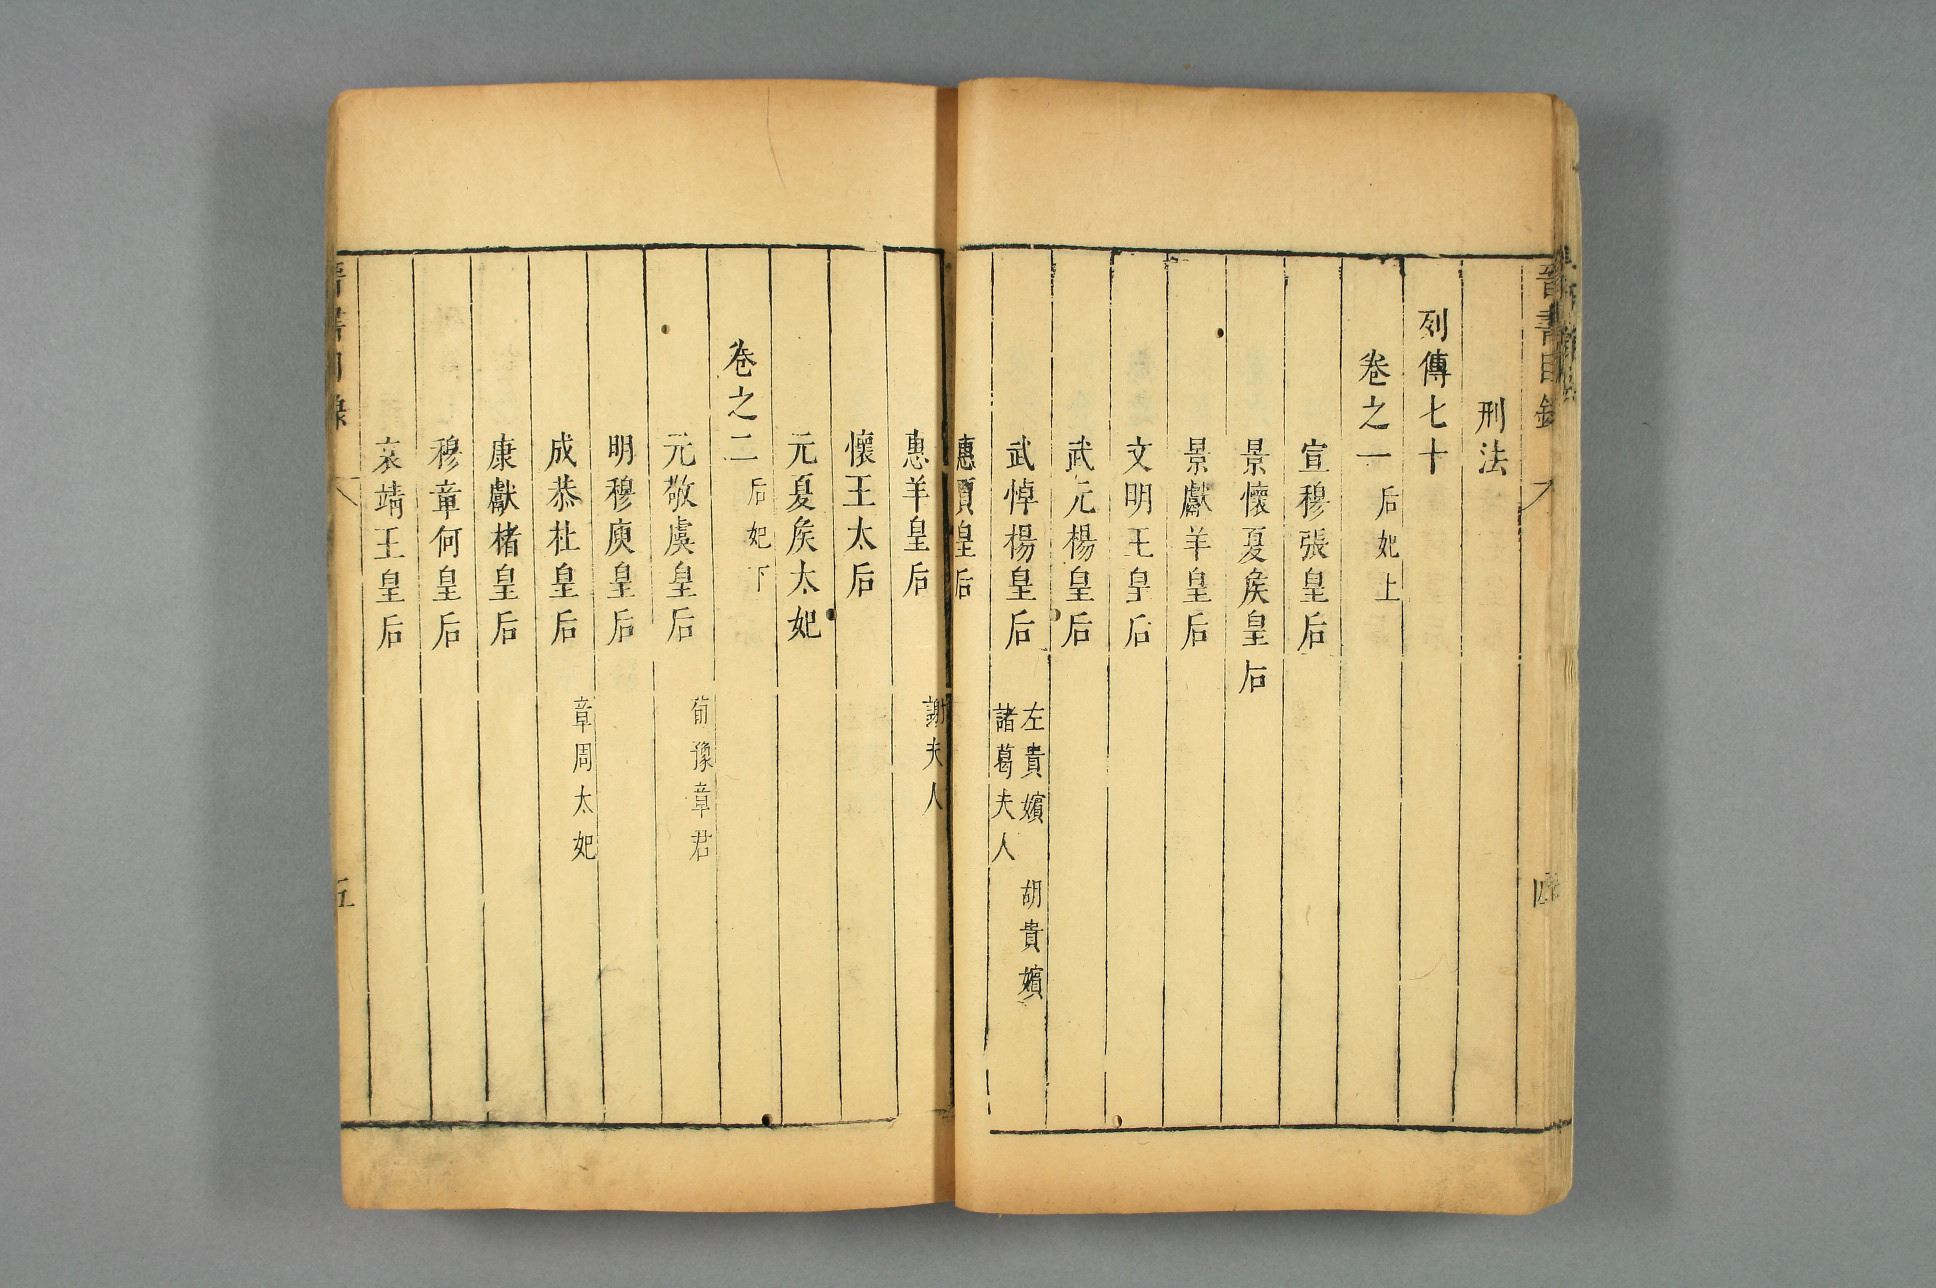 晉書目錄
四
刑法
列傳七十
卷之一 后妃上
宣穆張皇后
景懷夏矦皇后
景獻羊皇后
文明王皇后
武元楊皇后
武悼楊皇后 左貴嬪 胡貴嬪
諸葛夫人
惠賈皇后
謝夫人
惠羊皇后
懷王太后
元夏矦太妃
卷之二 后妃下
元敬虞皇后
荀豫章君
明穆庾皇后
成恭杜皇后
章周太妃
康獻楮皇后
穆章何皇后
哀靖王皇后
晉書目錄
五